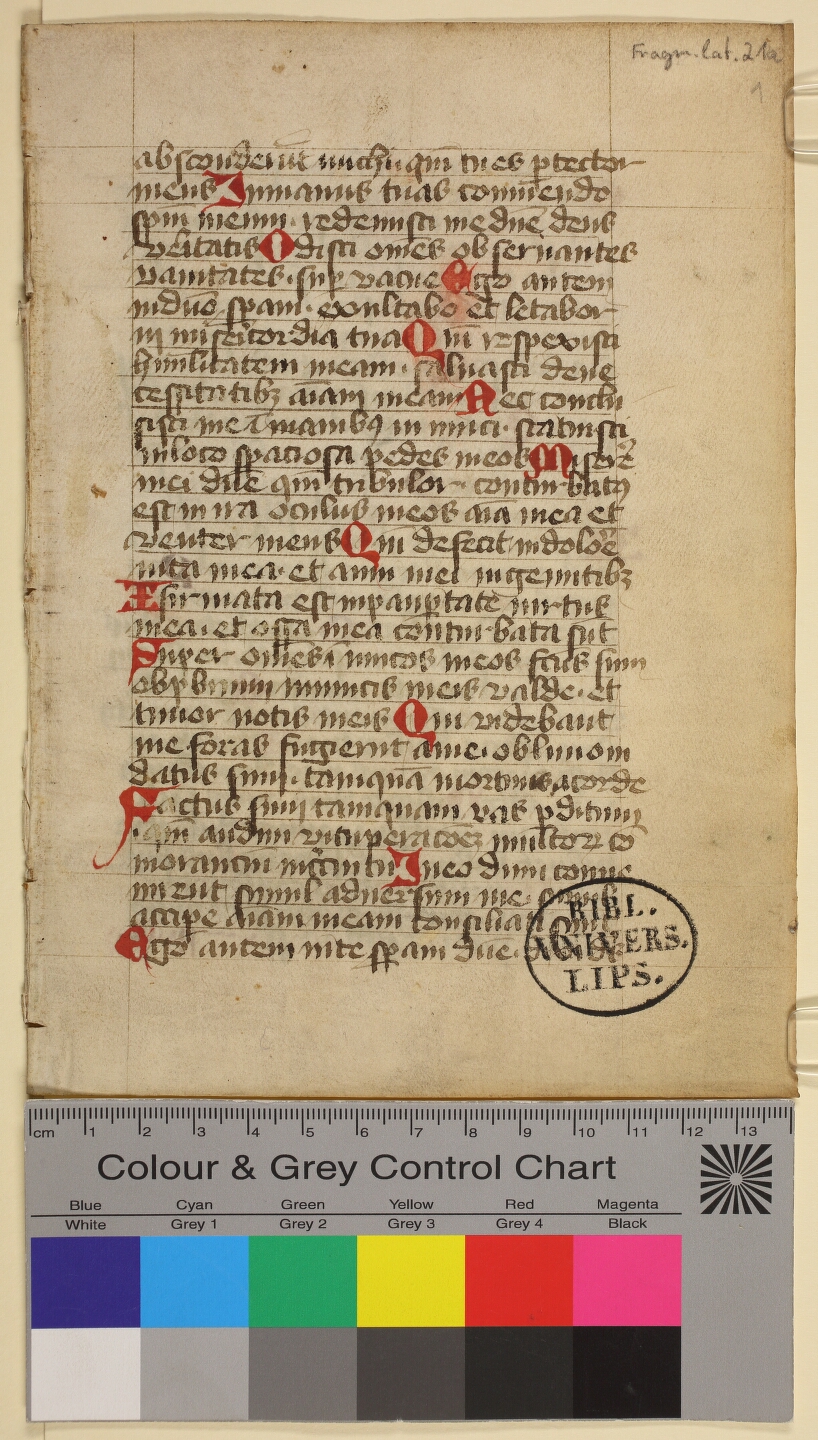 Fragm. lat. 21a
1
absconderūt michi qm̄ tu es ꝓtector
meus In manus tuas commendo
spm̄ meum · redemisti me dn̄e deus
veritatis Odisti om̄es obseruantes
vanitates · suꝑ vacue Ego autem
in dn̄o sꝑaui · exultabo et letabor
in misericordia tua Qm̄ respexisti
humilitatem meam · saluasti de ne
cessitatibꝫ aīam meam Nec conclu
sisti me ī manibꝰ inimici · statuisti
in loco spacioso pedes meos Miserere
mei dn̄e qm̄ tribulor · conturbatꝰ
est in ira oculus meos aīa mea et
venter meus Qm̄ defecit in dolore
vita mea · et anni mei in gemitibꝫ
Infirmata est in pauꝑtate virtus
mea · et ossa mea conturbata sūt
Super om̄es inimicos meos fc̄us sum
obꝓbrium vicinis meis valde · et
timor notis meis Qui videbant
me foras fugierūt a me · obliuioni
datus sum · tamquā mortuus a corde
Factus sum tamquam vas ꝑditum
qm̄ audiui vituꝑacōeꝫ multorꝝ cō
morancium in circuitu In eo dum conue
nirent simul aduersum me ·
accipe aīam meam consiliati
Ego autem in te sꝑaui dn̄e ·
BIBL.
VNIVERS.
LIPS.
cm 1 2 3 4 5 6 7 8 9 10 11 12 13
Colour & Grey Control Chart
Blue Cyan Green Yellow Red Magenta
White Grey 1 Grey 2 Grey 3 Grey 4 Black